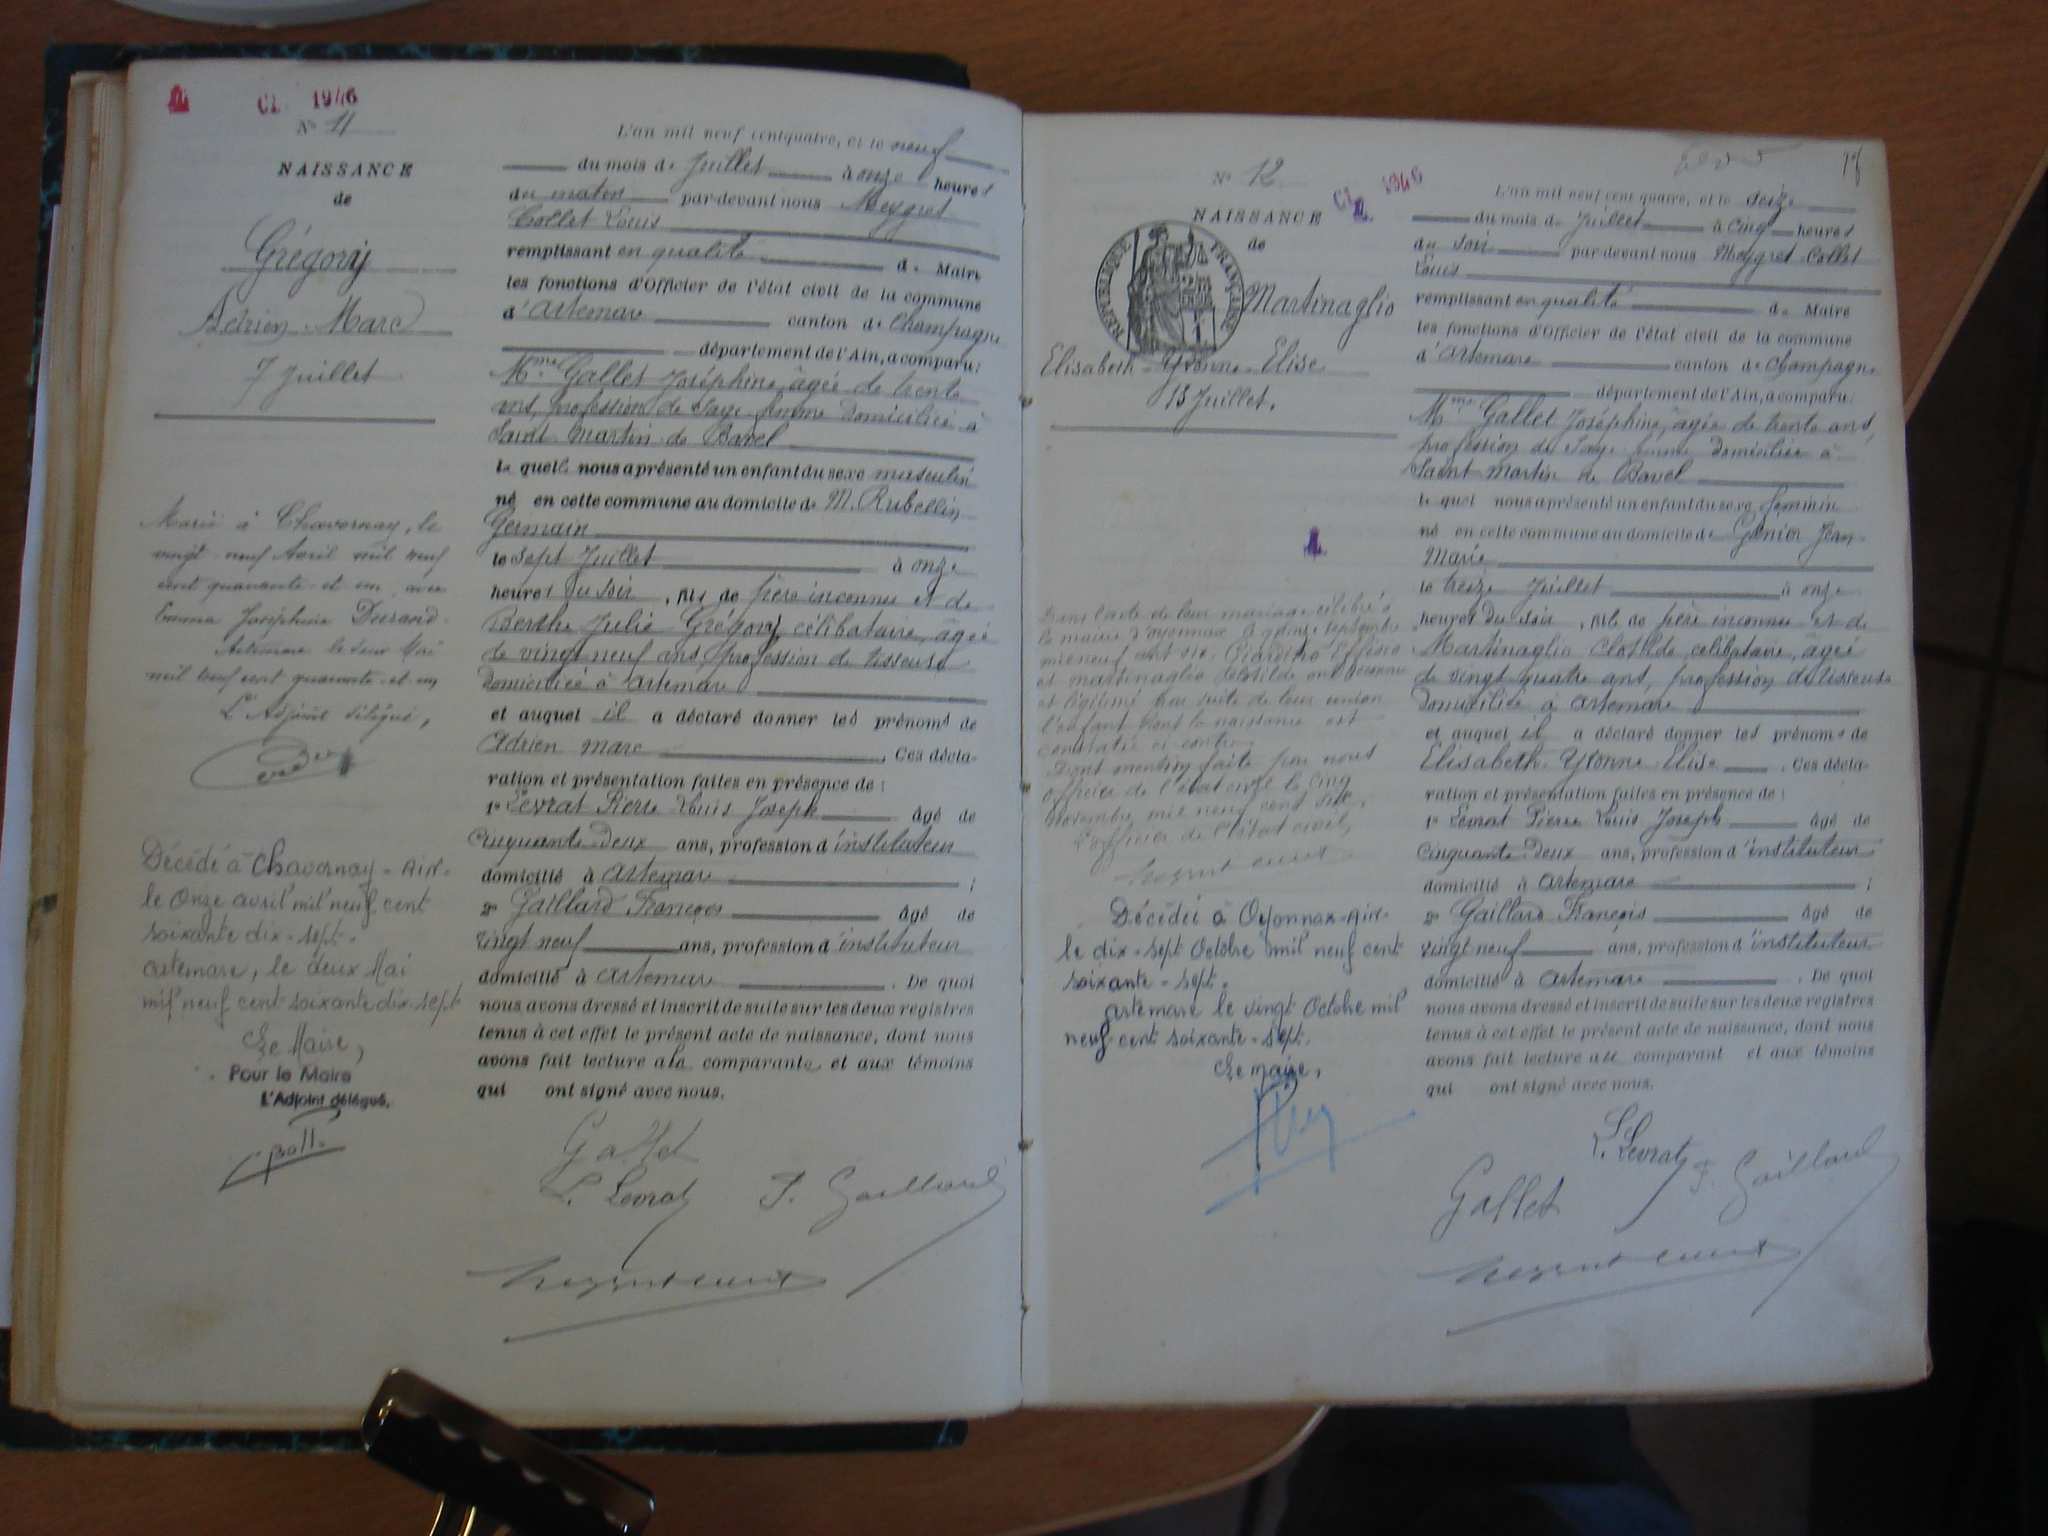 CL 1946
N° 11
NAISSANCE
de
Grégory
Adrien Marc
7 Juillet
Marié à Chavornay, le
vingt neuf Avril mil neuf
cent quarante et un avec
Emma Joséphine Durand.
Artemare le deux Mai
mil neuf cent quarante et un
L'Adjoint délégué,
Décédé à Chavornay - Ain -
le onze avril mil neuf cent
soixante dix-sept.
artemare, le deux Mai
mil neuf cent soixante dix-sept
Le Maire,
Pour le Maire
L'Adjoint délégué,
L'an mil neuf cent quatre, et le neuf
du mois de Juillet à onze heures
du matin par-devant nous Meygret
Collet Louis
remplissant en qualité de Maire
les fonctions d'Officier de l'état civil de la commune
d'Artemare canton de Champagne
département de l'Ain, a comparu:
Mme Gallet Joséphine, âgée de trente
ans, profession de Sage-femme domiciliée à
Saint Martin de Bavel
laquelle nous a présenté un enfant du sexe masculin
né en cette commune au domicile de M. Rubellin
Germain
le sept Juillet à onze
heures du soir, fils de père inconnu et de
Berthe Julie Grégory, célibataire, âgée
de vingt neuf ans, profession de tisseuse
domiciliée à artemare
et auquel il a déclaré donner les prénoms de
Adrien Marc. Ces décla-
ration et présentation faites en présence de:
1° Levrat Pierre Louis Joseph âgé de
cinquante-deux ans, profession d'instituteur
domicilié à Artemare;
2° Gaillard François âgé de
vingt neuf ans, profession d'instituteur
domicilié à Artemare. De quoi
nous avons dressé et inscrit de suite sur les deux registres
tenus à cet effet le présent acte de naissance, dont nous
avons fait lecture à la comparante et aux témoins
qui ont signé avec nous.
Gallet
L. Levrat F. Gaillard
N° 12
CL 1946
NAISSANCE
de
RÉPUBLIQUE FRANÇAISE
Martinaglio
Elisabeth-Yvonne-Elise
13 Juillet.
Dans l'acte de leur mariage célébré à
la mairie d'Oyonnax le quinze septembre
mil neuf cent six, Efisio
et Martinaglio Clotilde ont reconnu
et légitimé par suite de leur union
l'enfant dont la naissance est
constatée ci contre.
Dont mention faite par nous
officier de l'état civil le cinq
Novembre mil neuf cent six.
L'officier de l'état civil,
Décédée à Oyonnax-Ain-
le dix-sept Octobre mil neuf cent
soixante-sept.
artemare le vingt Octobre mil
neuf-cent soixante-sept.
Le maire,
L'an mil neuf cent quatre, et le seize
du mois de Juillet à cinq heures
du soir par-devant nous Meygret-Collet
Louis
remplissant en qualité de Maire
les fonctions d'Officier de l'état civil de la commune
d'Artemare canton de Champagne
département de l'Ain, a comparu:
Mme Gallet Joséphine, âgée de trente ans,
profession de Sage femme domiciliée à
Saint Martin de Bavel
lequel nous a présenté un enfant du sexe féminin
né en cette commune au domicile de Génior Jean-
Marie
le treize Juillet à onze
heures du soir, fils de père inconnu et de
Martinaglio Clotilde, célibataire, âgée
de vingt quatre ans, profession de tisseuse
domiciliée à Artemare
et auquel il a déclaré donner les prénoms de
Elisabeth-Yvonne-Elise. Ces décla-
ration et présentation faites en présence de:
1° Levrat Pierre Louis Joseph âgé de
cinquante-deux ans, profession d'instituteur
domicilié à Artemare;
2° Gaillard François âgé de
vingt neuf ans, profession d'instituteur
domicilié à Artemare. De quoi
nous avons dressé et inscrit de suite sur les deux registres
tenus à cet effet le présent acte de naissance, dont nous
avons fait lecture au comparant et aux témoins
qui ont signé avec nous.
L. Levrat F. Gaillard
Gallet